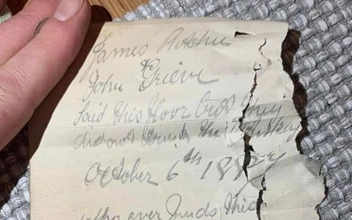 James Ritchie
& John Grieve
laid this floor but they
did not drink the whiskey
October 6th 1887
Who ever finds this